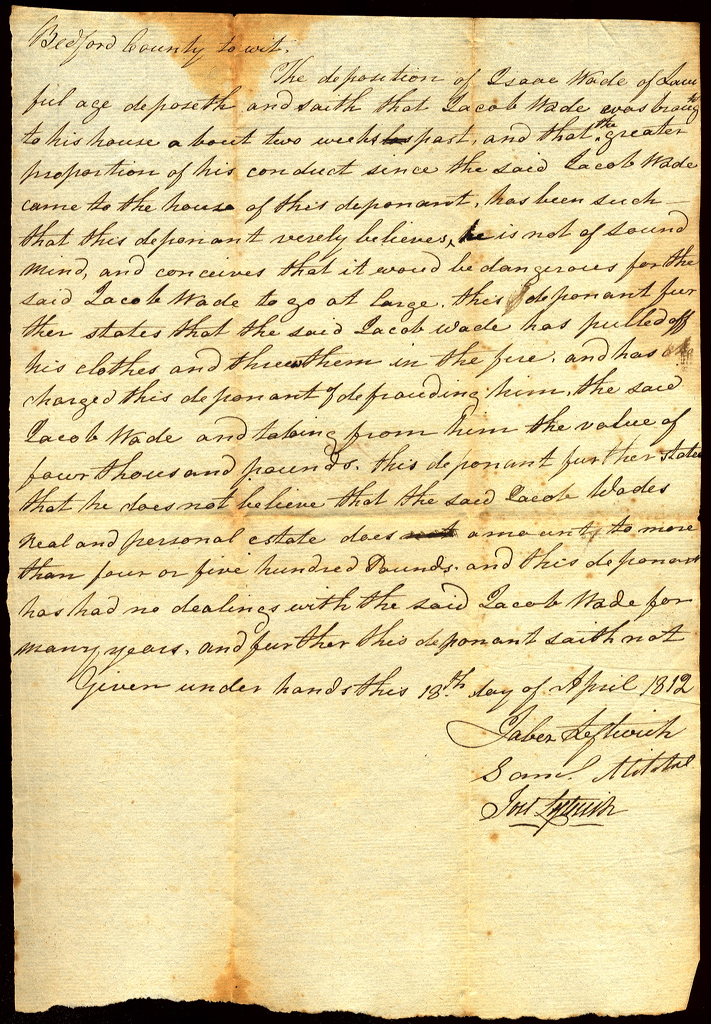 Bedford County to wit.
The deposition of Isaac Wade of Law
ful age deposeth and saith that Jacob Wade was brought
to his house about two weeks past, and that the greater
proportion of his conduct since the said Jacob Wade
came to the house of this deponant, has been such
that this deponant verely believes, he is not of sound
mind, and conceives that it woud be dangerous for the
said Jacob Wade to go at large. this deponant fur
ther states that the said Jacob Wade has pulled off
his clothes and threw them in the fire. and has
charged this deponant of defrauding him, the said
Jacob Wade and taking from him the value of
four thousand pounds. this deponant further states
that he does not believe that the said Jacob Wades
real and personal estate does not amounty to more
than four or five hundred Pounds. and this deponant
has had no dealings with the said Jacob Wade for
many years. and further this deponant saith not
Given under hands this 18th day of April 1812
Jabez Leftwich
Saml.
Joel Leftwich